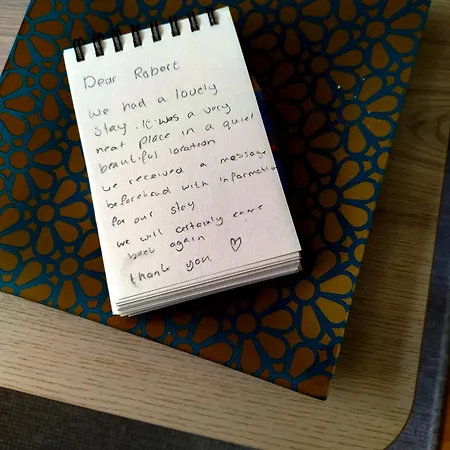 Dear Robert
We had a lovely
stay. It was a very
neat place in a quiet
beautiful location
we received a message
beforehand with information
for our stay
we will certainly come
back again
thank you ♡